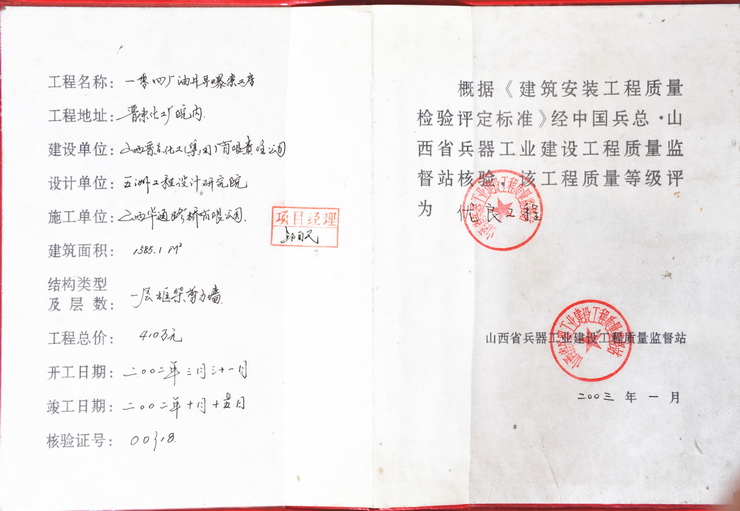 工程名称：一零四厂油井导爆索工房
工程地址：晋东化工厂院内
建设单位：山西晋东化工(集团)有限责任公司
设计单位：五洲工程设计研究院
施工单位：山西华通路桥有限公司
项目经理
建筑面积：1585.1 M²
结构类型
及层数：一层框架剪力墙
工程总价：410万元
开工日期：二00二年三月三十一日
竣工日期：二00二年十月十五日
核验证号：00318
概据《建筑安装工程质量
检验评定标准》经中国兵总·山
西省兵器工业建设工程质量监
督站核验，该工程质量等级评
为 优良工程
山西省兵器工业建设工程质量监督站
山西省兵器工业建设工程质量监督站
山西省兵器工业建设工程质量监督站
二00三年一月